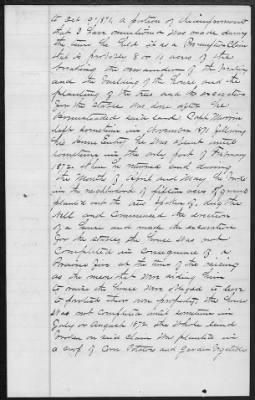 to Oct 9" 1871, a portion of the improvement
that I have mentioned was made during
the time he held it as a Preemption Claim
that is probably 8 or 10 acres of the
breaking the remainder of the breaking
and the building of the house and the
planting of the trees and the excavation
for the stable was done after he
Homesteaded said land Capt Morris
left sometime in November 1871 following
his Home Entry, he was absent until
sometime in the early part of February
1872 when he returned and during
the Month of April and May he broke
in the neighborhood of fifteen acres of ground
planted out the trees spoken of, dug the
well and commenced the erection
of a house and made the excavation
for the stable, the house was not
completed in consequence of a
Prairie fire at the time of the raising
as the men that were aiding him
to raise the house were obliged to leave
to protect their own property, the house
was not completed until sometime in
July or August 1872 the whole land
broken on said claim was planted in
a crop of Corn Potatoes and Garden Vegetables